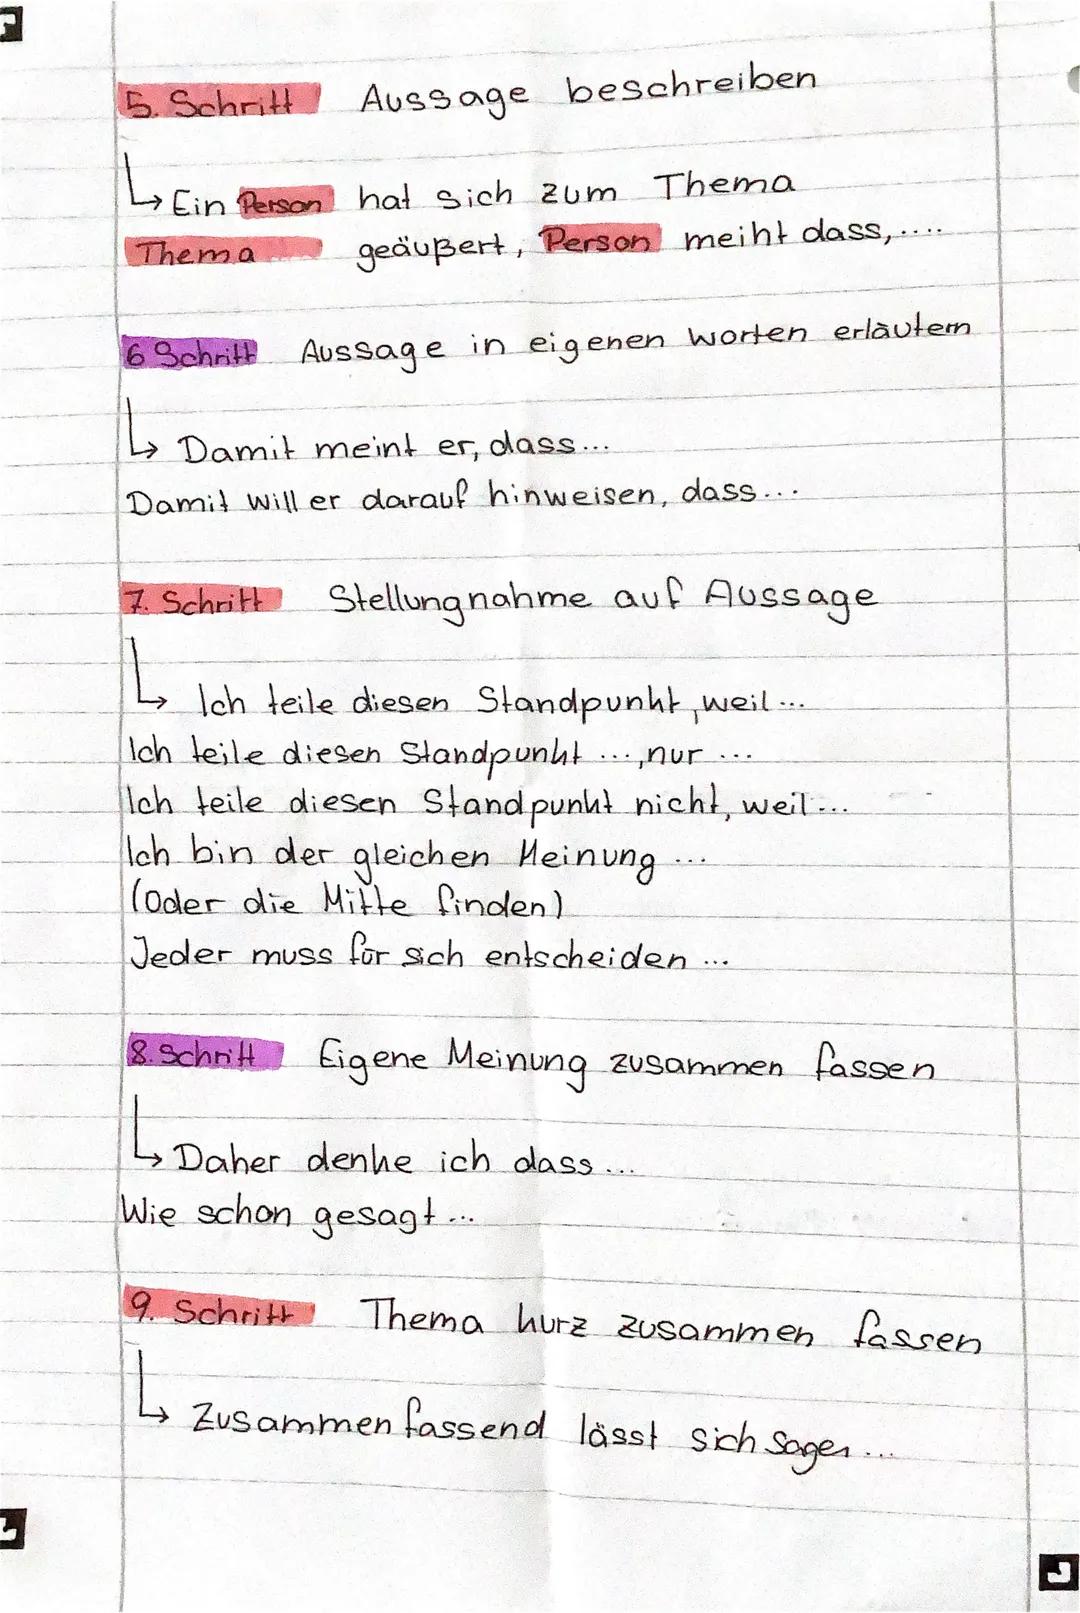 5. Schritt Aussage beschreiben
↳ Ein Person hat sich zum Thema
Thema geäußert, Person meint dass,....
6 Schritt Aussage in eigenen worten erläutern
↳ Damit meint er, dass...
Damit will er darauf hinweisen, dass...
7. Schritt Stellungnahme auf Aussage
↳ Ich teile diesen Standpunkt, weil...
Ich teile diesen Standpunkt ..., nur ...
Ich teile diesen Standpunkt nicht, weil...
Ich bin der gleichen Meinung ...
(Oder die Mitte finden)
Jeder muss für sich entscheiden ...
8. Schritt Eigene Meinung zusammen fassen
↳ Daher denke ich dass...
Wie schon gesagt...
9. Schritt Thema kurz zusammen fassen
↳ Zusammenfassend lässt sich sagen...